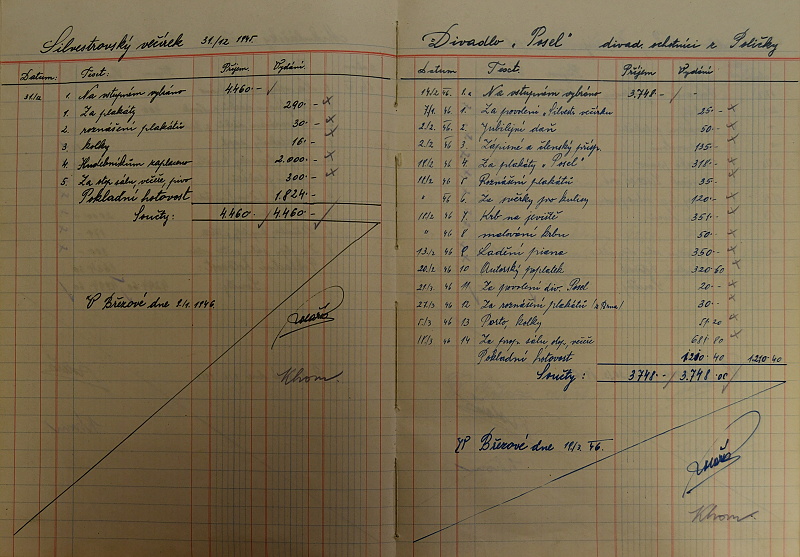 Silvestrovský večírek 31./12 1945.
Datum: Text: Příjem. Vydání.
31/12 1. Na vstupném vybráno 4460.-
1. Za plakáty 290.-
2. roznášení plakátů 30.-
3. kolky 16.-
4. Hudebníkům zaplaceno 2.000.-
5. Za stop. sálu, večeře, pivo 300.-
Pokladní hotovost 1.824.-
Součty: 4.460.- 4.460.-
V Březové dne 2./1. 1946.
Khom.
Divadlo „Posel" divad. ochotníci z Poličky
Datum Text. Příjem Vydání
46. 1.a Na vstupném vybráno 3.748.- -
7/1. 46 1. Za povolení „Silvestr. večírku 25.-
2/2. 46. 2. Jubilejní daň 50.-
2/2 46 3 Zápisné a členský přísp. 135.-
46 4 Za plakáty „Posel" 318.-
46 5 Roznášení plakátů 35.-
" 6. Za svíčky pro kulisy 120.-
46 7 Krb na jeviště 351.-
" 46 8 malování krbu 50.-
13/2 46 9 Ladění piana 350.-
20/2 46 10 Autorský poplatek 320.60
21/3 46 11 Za povolení div. Posel 20.-
27/3 46 12 Za roznášení plakátů 30.-
46 13 Porto, kolky 51.20
46 14 Za sálu večeře 681.80
Pokladní hotovost 1210.40 1210.40
Součty: 3.748.- 3.748.00
V Březové dne 46.
Khom.